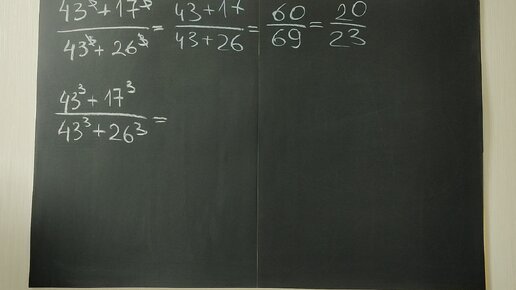 43³ + 17³ / 43³ + 26³ = 43 + 17 / 43 + 26 = 60 / 69 = 20 / 23
43³ + 17³ / 43³ + 26³ =